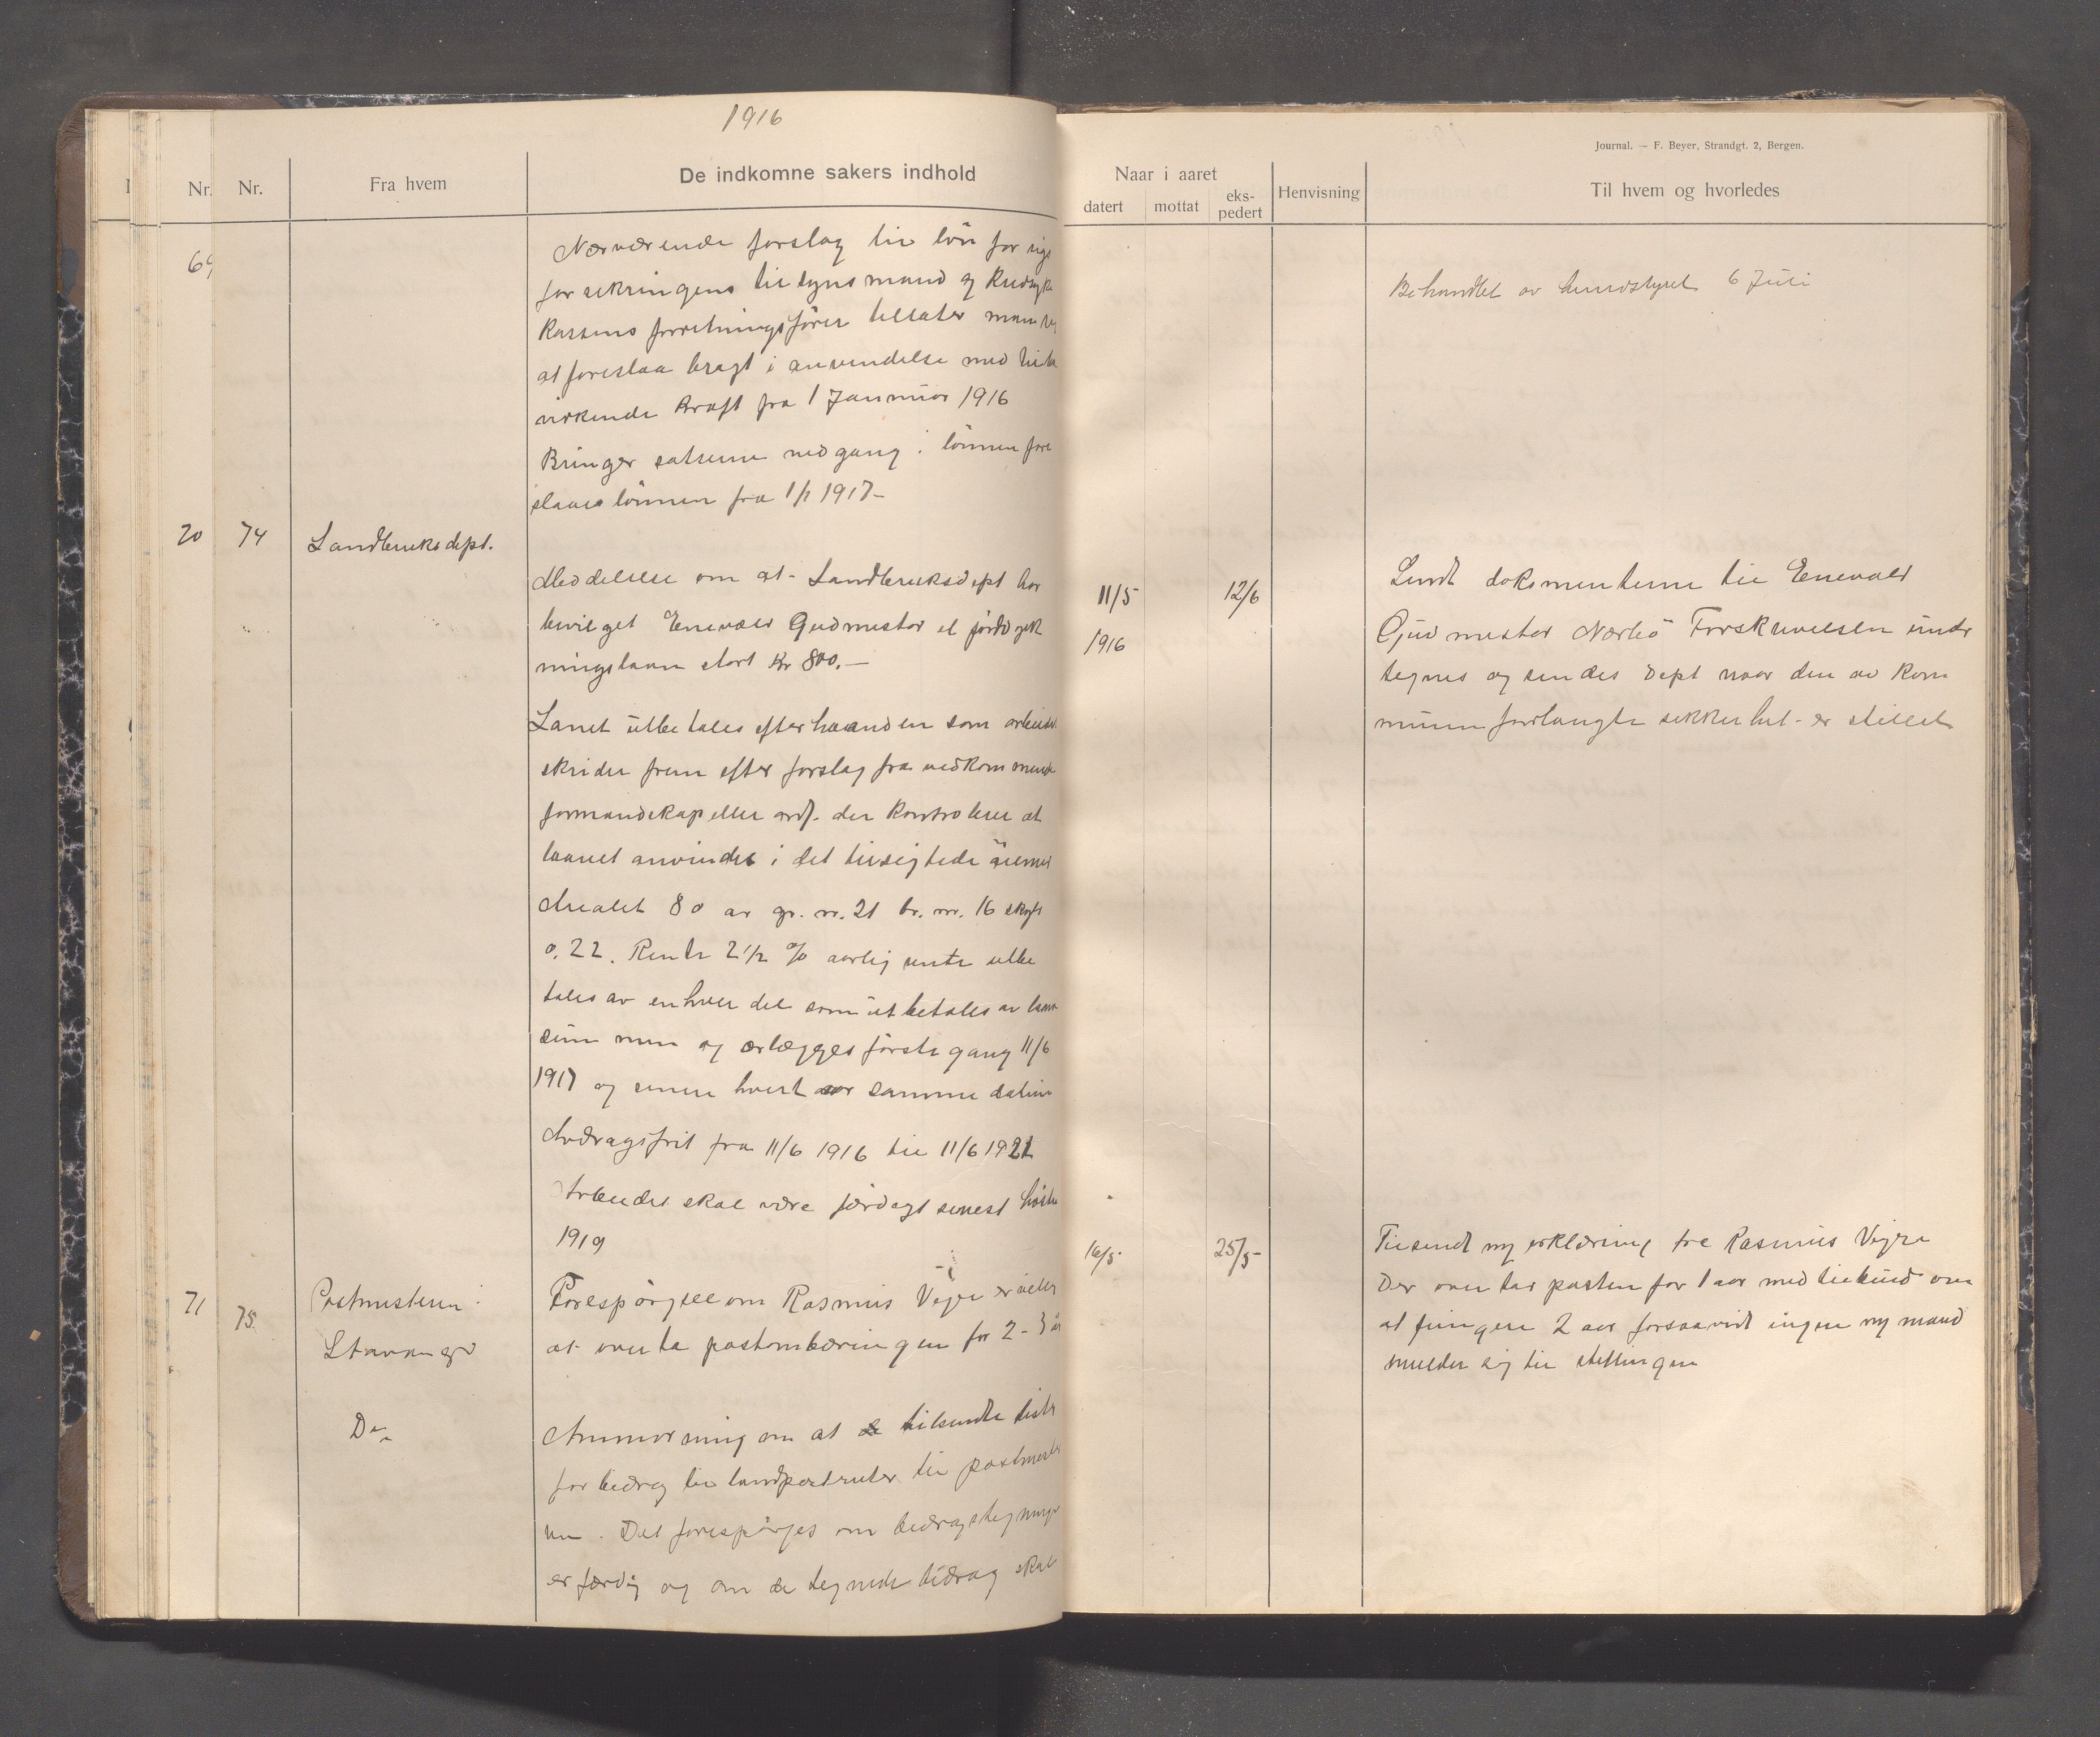 1916
Nr.
Nr.
Fra hvem
De indkomne sakers indhold
Nærværende forslag til løn for
forsikringens tilsynsmand og
kassens forretningsfører tillater man
at foreslaa bragt i anvendelse med
virkende kraft fra 1 Januar 1916
Bringer satserne nedgang i lønnen fore
slaaes lønnen fra 1/1 1917-
70 74 Landbruksdept.
Meddelelse om at Landbruksdept har
bevilget Enevald Gudmestad et jorddyrk
ningslaan stort Kr 800.—
Lanet utbetales efterhaanden som arbeidet
skrider frem efter forslag fra vedkommende
formandskap eller ordf. der kontrolerer at
laanet anvendes i det tilsigtede øiemed
Arealet 80 ar gr. nr. 21 br. nr. 16 skyld
0.22. Rente 2 1/2 % aarlig rente utbe
tales av enhver del som utbetales av laane
summen og erlægges første gang 11/6
1917 og senere hvert aar samme datum
Avdragsfrit fra 11/6 1916 til 11/6 1921
Arbeidet skal være færdigt senest høsten
1919
71 75. Postmesteren i
Stavanger
Forespørgsel om Rasmus Vigre er villig
at overta postombæringen for 2-3 år
Do
Anmodning om at de tilsendte lister
for bidrag til landpostruter til postmeste
ren. Det forespørges om bidragstegningen
er færdig og om de tegnede bidrag skal
Journal. — F. Beyer, Strandgt. 2, Bergen.
Naar i aaret
datert
mottat
eks-
pedert
Henvisning
Til hvem og hvorledes
Behandlet av herredstyret 6 Juli
11/5 12/6
1916
Sendt dokumenterne til Enevald
Gudmestad Nærbø Forskrivelsen under
tegnes og sendes Dept naar den av kom
munen forlangte sikkerhet er stillet
16/5 25/5
Tilsendt ny erklæring fra Rasmus Vigre
Der overtar posten for 1 aar med tilbud om
at fungere 2 aar forsaavidt ingen ny mand
melder sig til stillingen